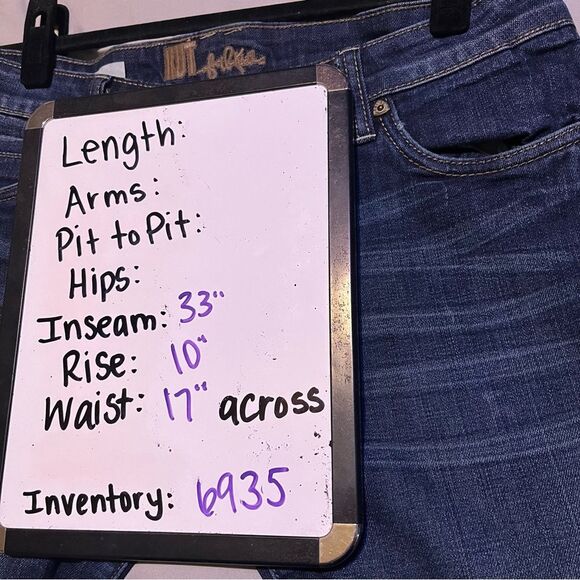 KUT
Length:
Arms:
Pit to Pit:
Hips:
Inseam: 33"
Rise: 10"
Waist: 17" across
Inventory: 6935